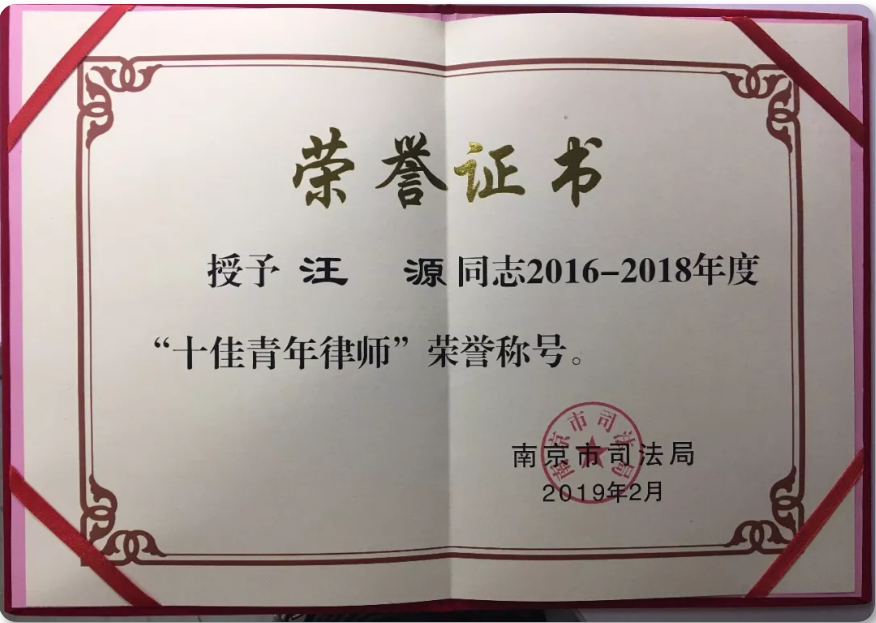 荣誉证书
授予 汪 源 同志2016-2018年度
“十佳青年律师”荣誉称号。
南京市司法局
南京市司法局
2019年2月